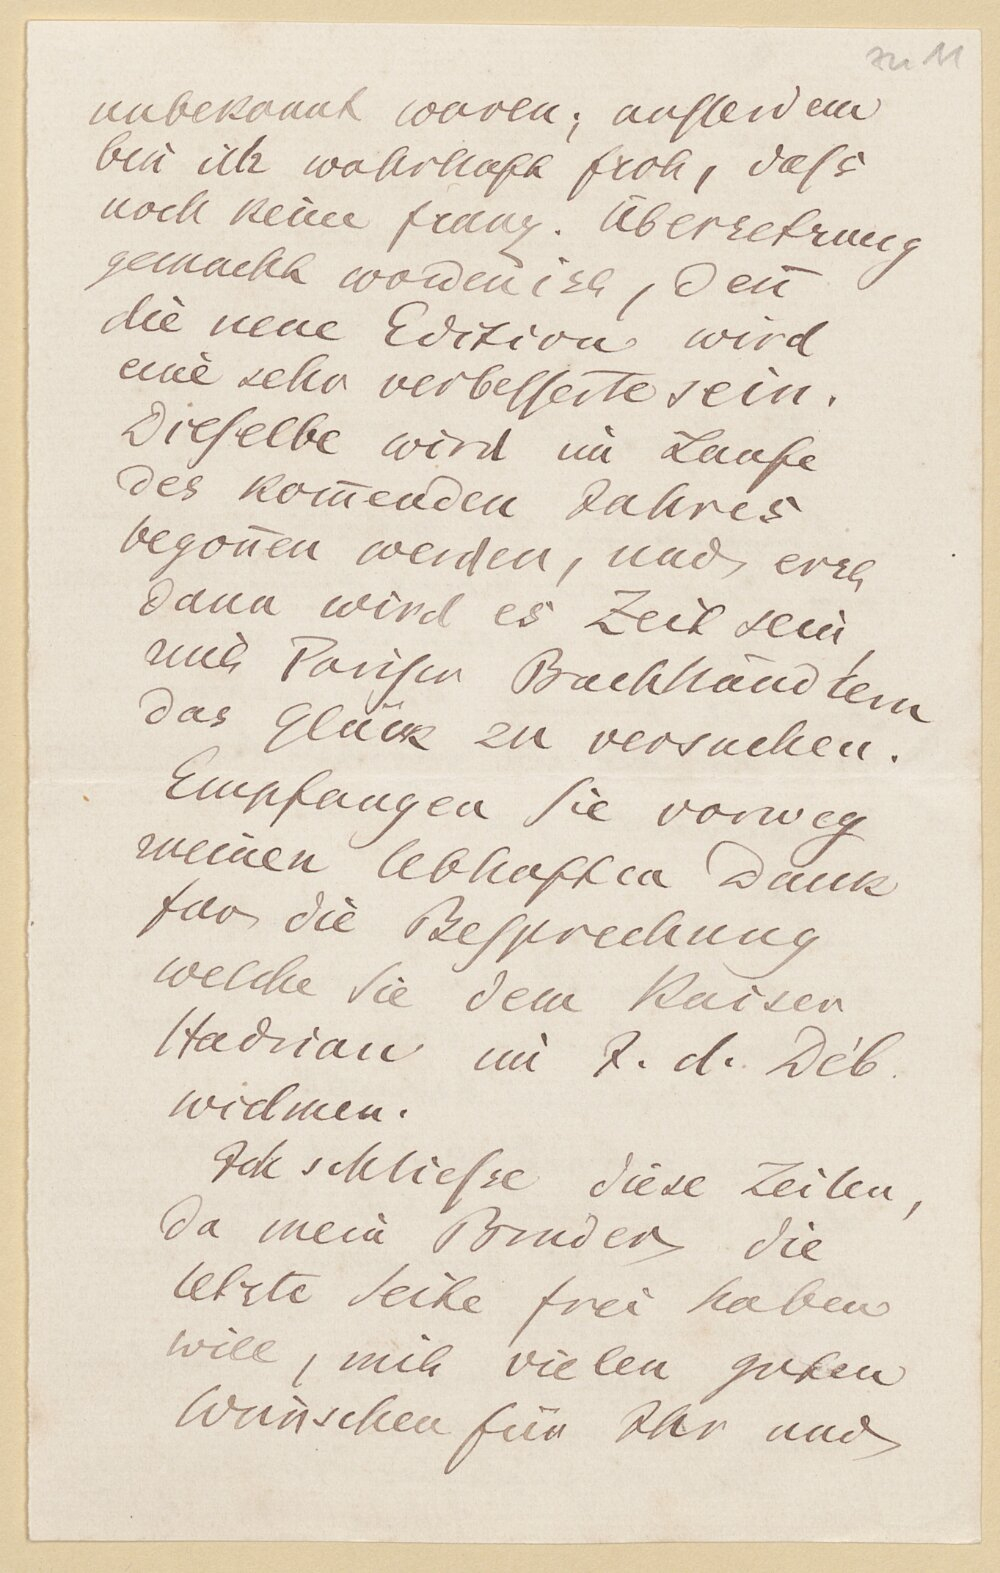 zu 11
unbekannt waren; außerdem
bin ich wahrhaft froh, daſs
noch keine franz. Übersetzung
gemacht worden ist, den̅
die neue Edition wird
eine sehr verbesserte sein.
Dieselbe wird im Laufe
des kom̅enden Jahres
begon̅en werden, und erst
dann wird es Zeit sein,
mit Pariser Buchhändlern
das Glück zu versuchen.
Empfangen Sie vorweg
meinen lebhaften Dank
für die Besprechung
welche Sie dem Kaiser
Hadrian im J. d. Déb.
widmen.
Ich schließe diese Zeilen,
da mein Bruder die
letzte Seite frei haben
will, mit vielen guten
Wünschen für Ihr und